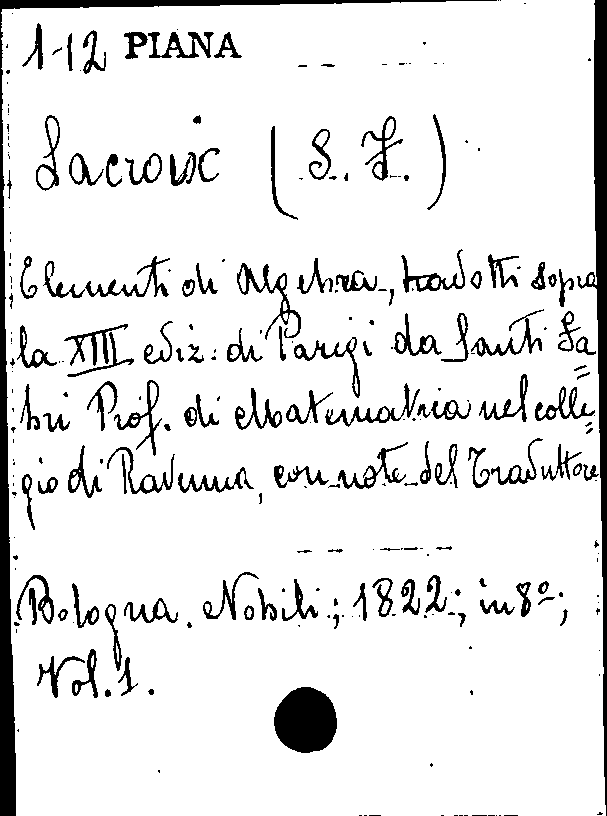 1-12 PIANA
Lacroix (S. F.)
Elementi di Algebra, tradotti sopra
la XIII ediz: di Parigi da Santi Fa=
bri Prof. di Matematica nel colle=
gio di Ravenna, con note del Traduttore
Bologna. Nobili; 1822; in 8º;
Vol. 1.